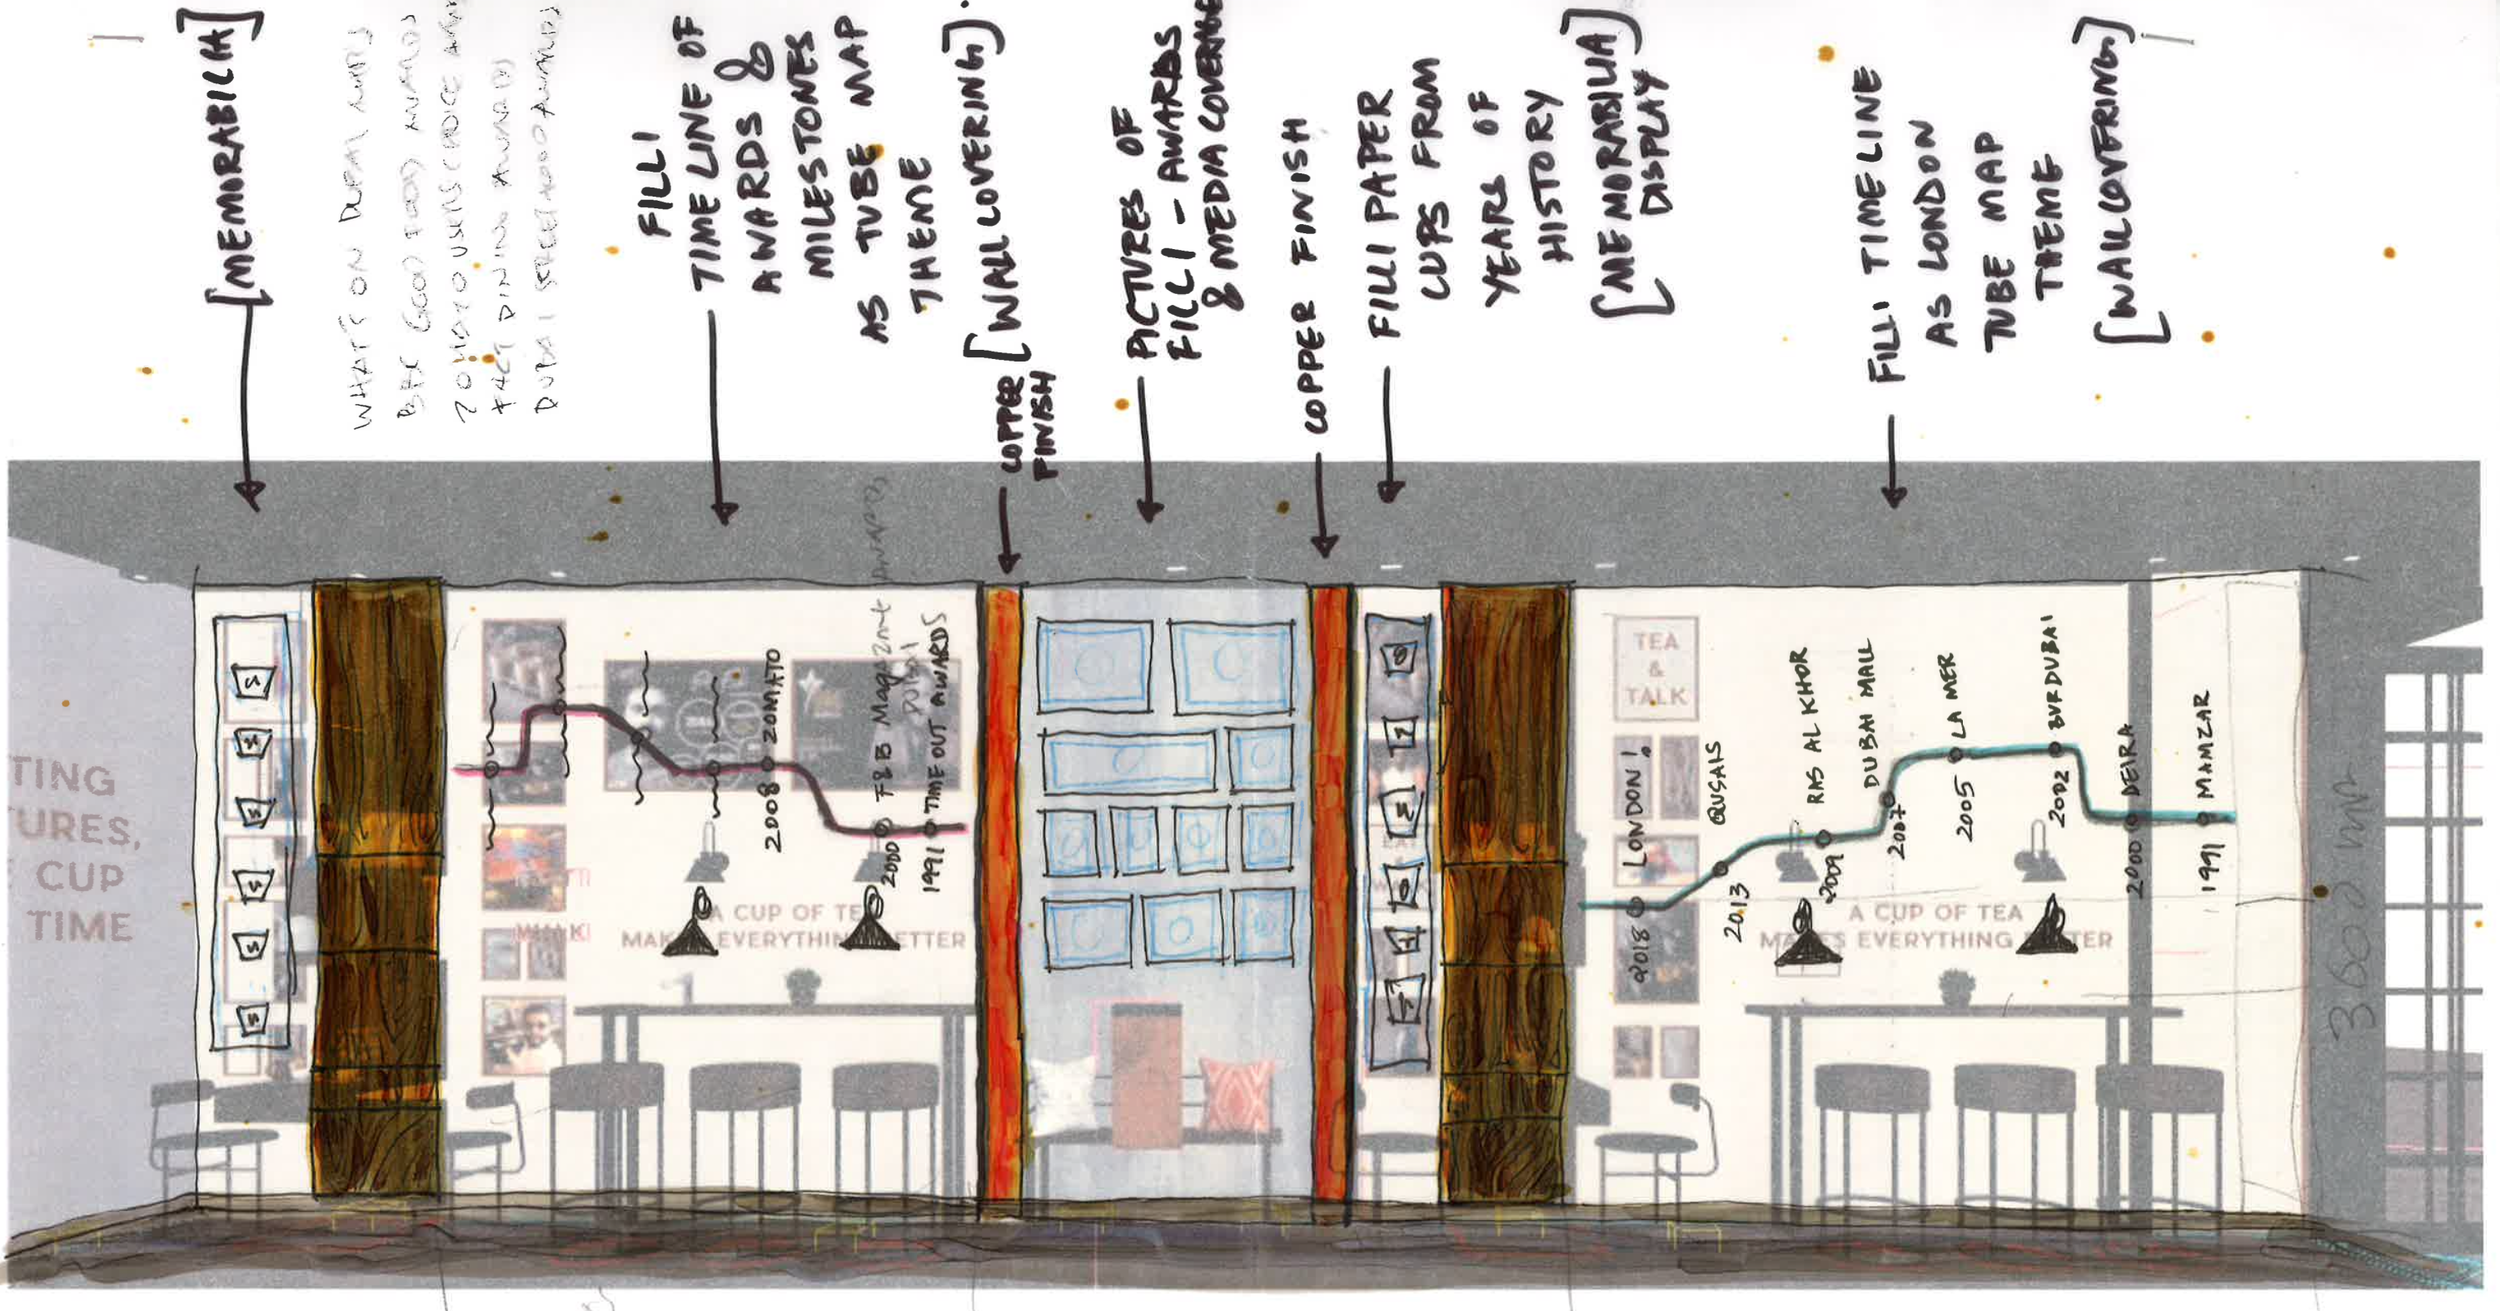 [MEMORABILIA]
WHAT'S ON DUBAI
BBC GOOD FOOD AWARDS
FACT DINING AWARDS
FILLI
TIMELINE OF
AWARDS &
MILESTONES
AS TUBE MAP
THEME
[WALLCOVERING].
COPPER
FINISH
PICTURES OF
FILLI - AWARDS
& MEDIA COVERAGE
COPPER FINISH
FILLI PAPER
CUPS FROM
YEARS OF
HISTORY
[MEMORABILIA
DISPLAY
FILLI TIMELINE
AS LONDON
TUBE MAP
THEME
[WALLCOVERING]
TING
URES,
CUP
TIME
2008 ZOMATO
2000 F&B Magazine
DUBAI
AWARDS
1991 TIMEOUT AWARDS
A CUP OF TE
MAK EVERYTHIN ETTER
TEA
&
TALK
2018 LONDON!
2013 QUSAIS
2009 RAS AL KHOR
2007 DUBAI MALL
2005 LA MER
2002 BURDUBAI
2000 DEIRA
1991 MAMZAR
A CUP OF TEA
MA ES EVERYTHING TER
3600 mm